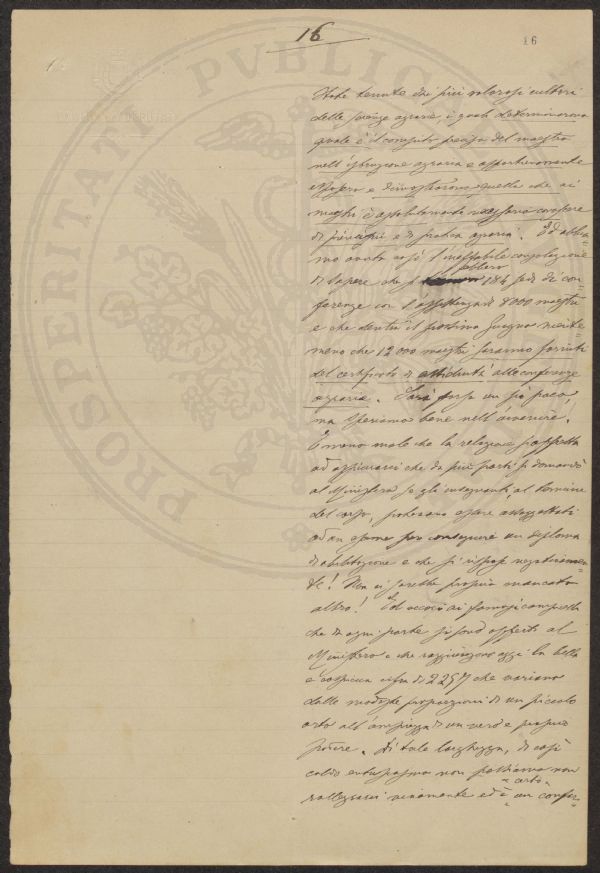 16
16
PROSPERITATI PVBLICAE
state tenute dai più valorosi cultori
delle scienze agrarie, i quali determinarono
quale è il compito preciso del maestro
nell'istruzione agraria e opportunamente
esposero e dimostrarono quello che ai
maestri è assolutamente necessario conoscere
di principii e di pratica agraria. Ed abbia-
mo avuto così l'ineffabile consolazione
di sapere che furono 184 sedi di con-
ferenze con l'assistenza di 8000 maestri
e che dentro il prossimo Giugno niente-
meno che 12000 maestri saranno forniti
del certificato di attitudine alle conferenze
agrarie. Sarà forse un pò poco,
ma speriamo bene nell'avvenire.
E meno male che la relazione si affretta
ad assicurarci che da più parti si domandò
al Ministero se gli insegnanti, al termine
del corso, potevano essere assoggettati
ad un esame per conseguire un diploma
di abilitazione e che si rispose negativamen-
te! Non ci sarebbe proprio mancato
altro! Ed eccoci ai famosi campicelli
che da ogni parte si sono offerti al
Ministero e che raggiungono oggi la bella
e cospicua cifra di 2257 che variano
dalle modeste proporzioni di un piccolo
orto all'ampiezza di un vero e proprio
podere. Di tale larghezza, di così
caldo entusiasmo non possiamo non
rallegrarci vivamente ed è certo un confor-